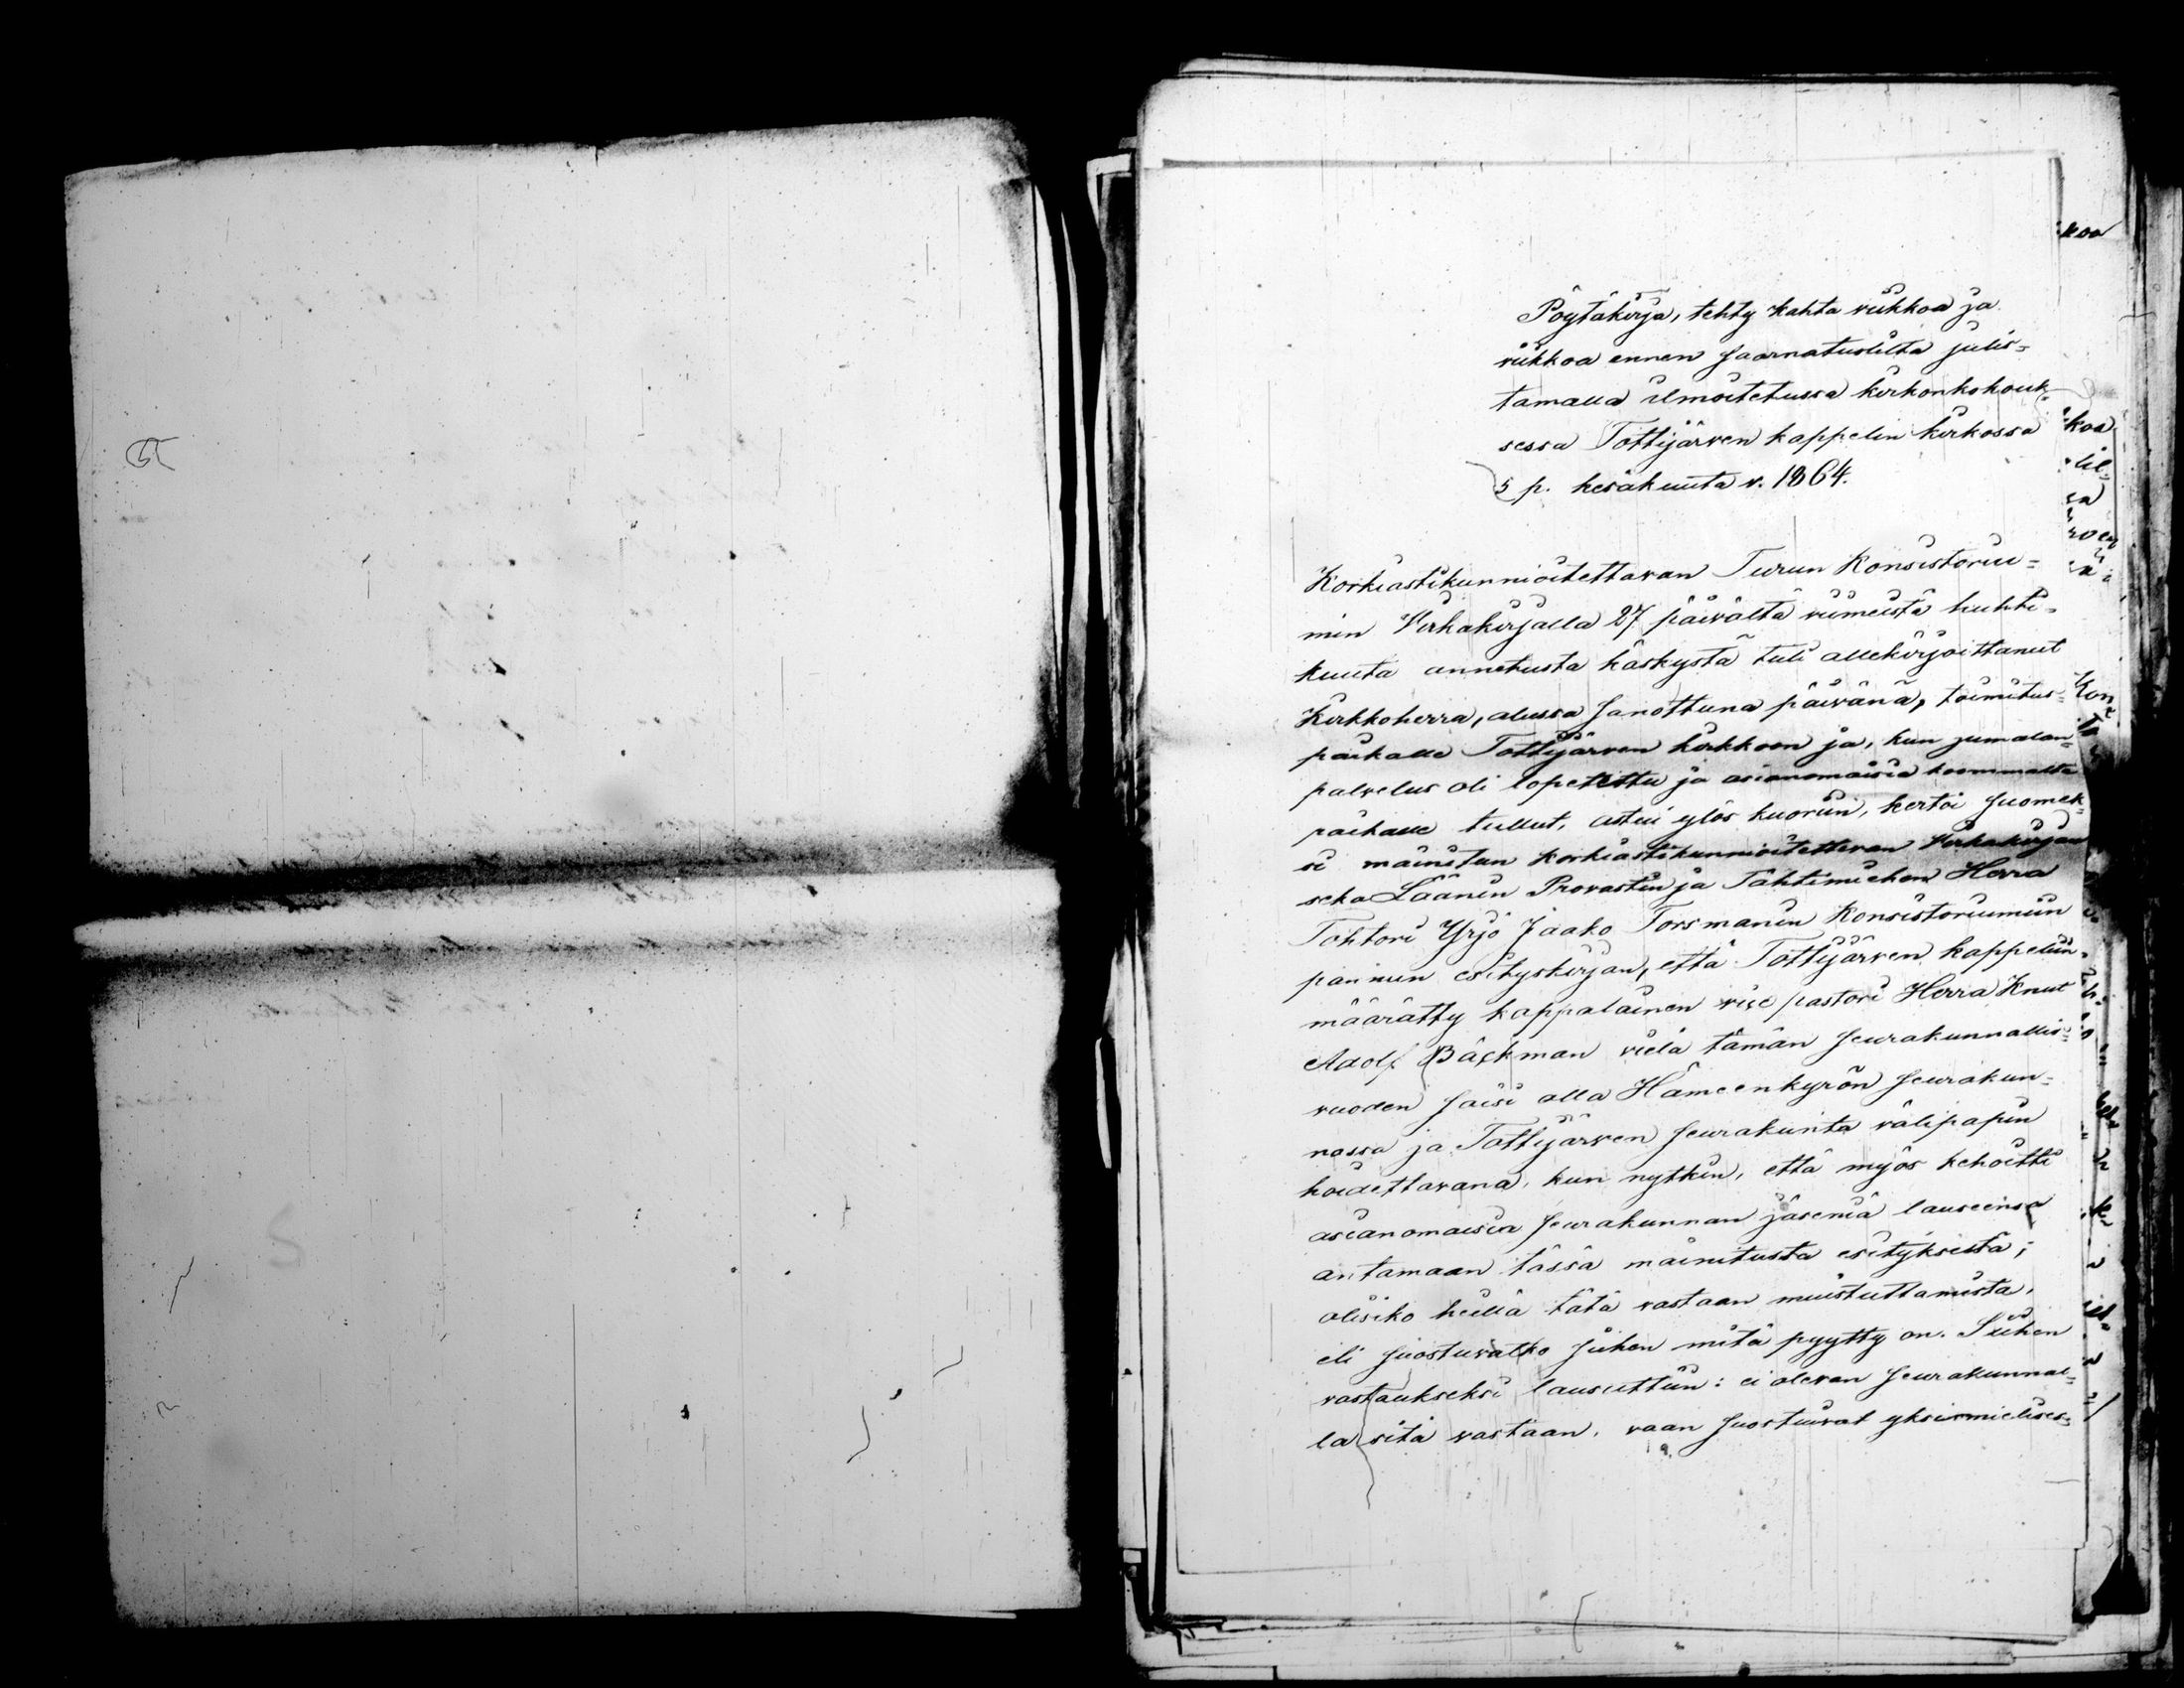 Pöytäkirja, tehty kahta viikkoa ja
viikkoa ennen saarnatuolilta julis-
tamalla ilmoitetussa kirkonkokouk-
sessa Tottijärven kappelin kirkossa
5 p. kesäkuuta v. 1864.
Korkiastikunnioitettavan Turun Konsistoriu-
min Virkakirjalla 27 päivältä viimeistä huhti-
kuuta annetusta käskystä tuli allekirjoittanut
Kirkkoherra, alussa sanottuna päivänä, toimitus-
paikalle Tottijärven kirkkoon ja, kun jumalan-
palvelus oli lopetettu ja asianomaisia koommalta
paikalle tullut, astui ylös kuoriin, kertoi suomek-
si mainitun korkiastikunnioitettavan Virkakirjan
seka Läänin Provastin ja Tähtimiehen Herra
Tohtori Yrjö Jaako Forsmanin Konsistoriumiin
pannun esityskirjan, että Tottijärven kappeliin
määrätty kappalainen vice pastori Herra Knut
Adolf Bäckman vielä tämän seurakunnallis-
vuoden saisi olla Hämeenkyrön seurakun-
nassa ja Tottijärven seurakunta välipapin
hoidettavana, kun nytkin, että myös kehoitti
asianomaisia seurakunnan jäseniä lauseensa
antamaan tässä mainitusta esityksestä;
olisiko heillä tätä vastaan muistuttamista,
eli suostuvatko siihen mitä pyytty on. Siihen
vastaukseksi lausuttiin: ei olevan seurakunnal-
la sitä vastaan, vaan suostuivat yksimielises-